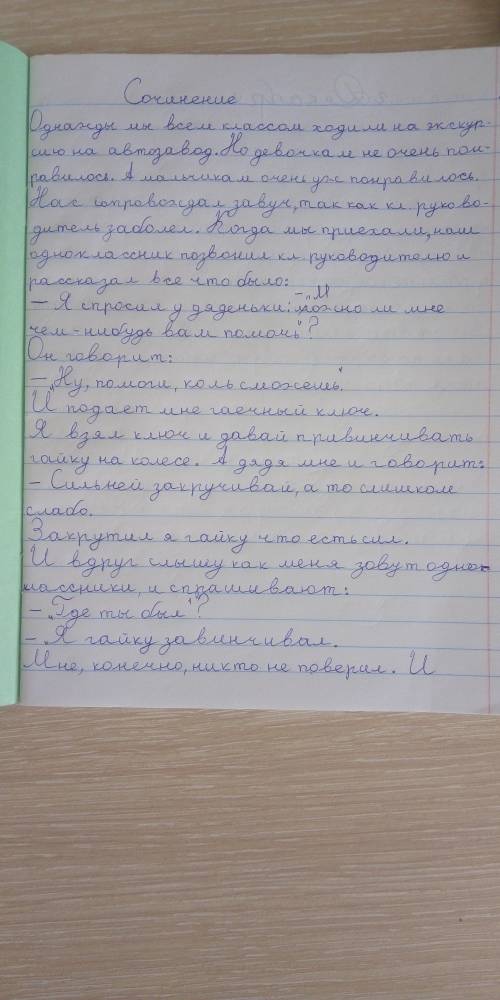 Сочинение
Однажды мы всем классом ходили на экскур-
сию на автозавод. Но девочкам не очень пон-
равилось. А мальчикам очень уж понравилось.
Нас сопровождал завуч, так как кл. руково-
дитель заболел. Когда мы приехали, наш
одноклассник позвонил кл. руководителю и
рассказал все что было:
– Я спросил у дяденьки: –„Можно ли мне
чем-нибудь вам помочь"?
Он говорит:
– „Ну, помоги, коль сможешь".
И подает мне гаечный ключ.
Я взял ключ и давай привинчивать
гайку на колесе. А дядя мне и говорит:
– Сильней закручивай, а то слишком
слабо.
Закрутил я гайку что есть сил.
И вдруг слышу как меня зовут однок-
лассники, и спрашивают:
– „Где ты был"?
– Я гайку завинчивал.
Мне, конечно, никто не поверил. И